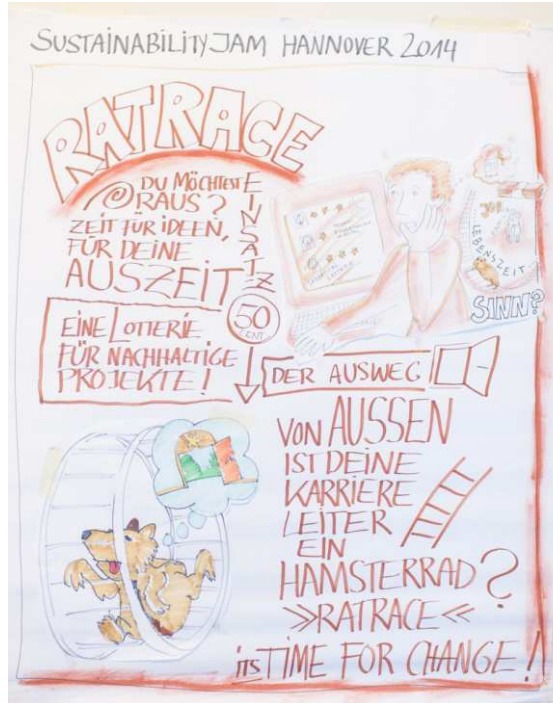 SUSTAINABILITY JAM HANNOVER 2014
RATRACE
DU MÖCHTEST
RAUS?
ZEIT FÜR IDEEN,
FÜR DEINE
AUSZEIT
EINSATZ
50
CENT
EINE LOTTERIE
FÜR NACHHALTIGE
PROJEKTE!
JOB
LEBENSZEIT
SINN?
DER AUSWEG
VON AUSSEN
IST DEINE
KARRIERE
LEITER
EIN
HAMSTERRAD?
»RATRACE«
ITS TIME FOR CHANGE!